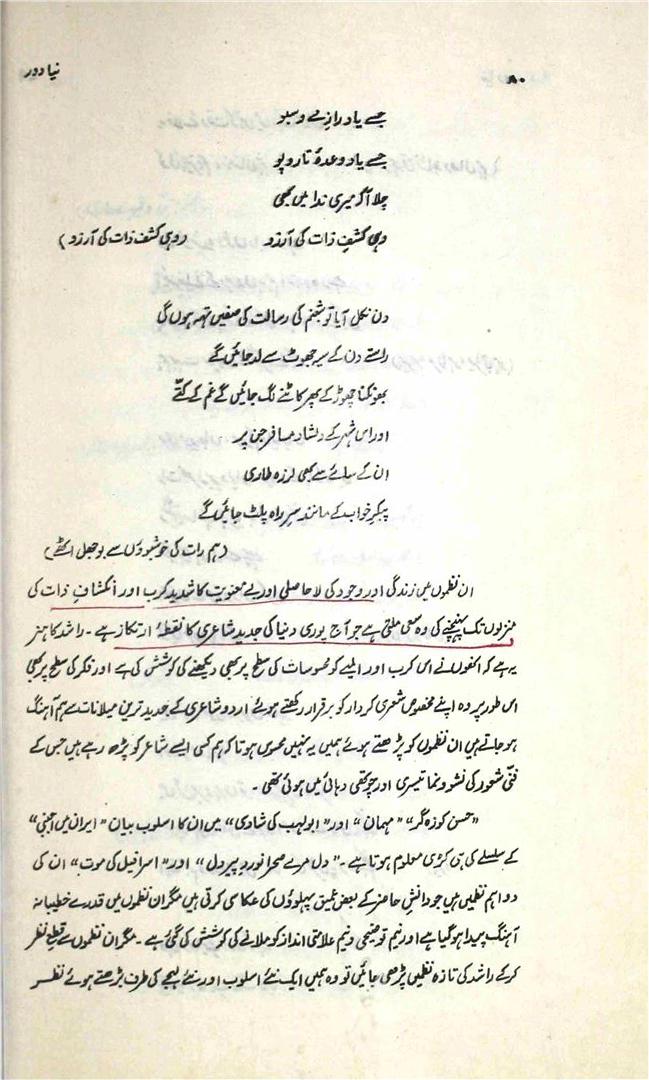 ۸۰
نیا دور
جسے یاد رازِ مے و سبو
جسے یاد وعدۂ تار و پو
چلا آ کہ میری ندا میں بھی
وہی کشفِ ذات کی آرزو
(وہی کشف ذات کی آرزو)
دن نکل آیا تو شبنم کی رسالت کی صفیں تہہ ہوں گی
راستے دن کے سیہ جھوٹ سے لد جائیں گے
بھونکنا چھوڑ کے پھر کاٹنے لگ جائیں گے غم کے کتّے
اور اس شہر کے دلشاد مسافر جن پر
ان کے سائے سے بھی لرزہ طاری
پیکرِ خواب کے مانند سرِ راہ پلٹ جائیں گے
(ہم رات کی خوشبوؤں سے بوجھل اٹھے)
ان نظموں میں زندگی اور وجود کی لاحاصلی اور بے معنویت کا شدید کرب اور انکشافِ ذات کی
منزلوں تک پہنچنے کی وہ سعی ملتی ہے جو آج پوری دنیا کی جدید شاعری کا نقطۂ ارتکاز ہے ۔ راشد کا ہنر
یہ ہے کہ انھوں نے اس کرب اور المیے کو محسوسات کی سطح پر بھی دیکھنے کی کوشش کی ہے اور فکر کی سطح پر بھی
اس طور پر وہ اپنے مخصوص شعری کردار کو برقرار رکھتے ہوئے اردو شاعری کے جدید ترین میلانات سے ہم آہنگ
ہو جاتے ہیں ان نظموں کو پڑھتے ہوئے ہمیں یہ نہیں محسوس ہوتا کہ ہم کسی ایسے شاعر کو پڑھ رہے ہیں جس کے
فنّی شعور کی نشو و نما تیسری اور چوتھی دہائی میں ہوئی تھی ۔
"حسن کوزہ گر" "مہمان" اور "ابولہب کی شادی" میں ان کا اسلوب بیان "ایران میں اجنبی"
کے سلسلے کی ہی کڑی معلوم ہوتا ہے ۔ "دل مرے صحرا نوردِ پیر دل" اور "اسرافیل کی موت" ان کی
دو اہم نظمیں ہیں جو دانشِ حاضر کے بعض عمیق پہلوؤں کی عکاسی کرتی ہیں مگر ان نظموں میں قدرے خطیبانہ
آہنگ پیدا ہو گیا ہے اور نیم توضیحی و نیم علامتی انداز کو ملانے کی کوشش کی گئی ہے ۔ مگر ان نظموں سے قطعِ نظر
کر کے راشد کی تازہ نظمیں پڑھی جائیں تو وہ ہمیں ایک نئے اسلوب اور نئے لہجے کی طرف بڑھتے ہوئے نظر